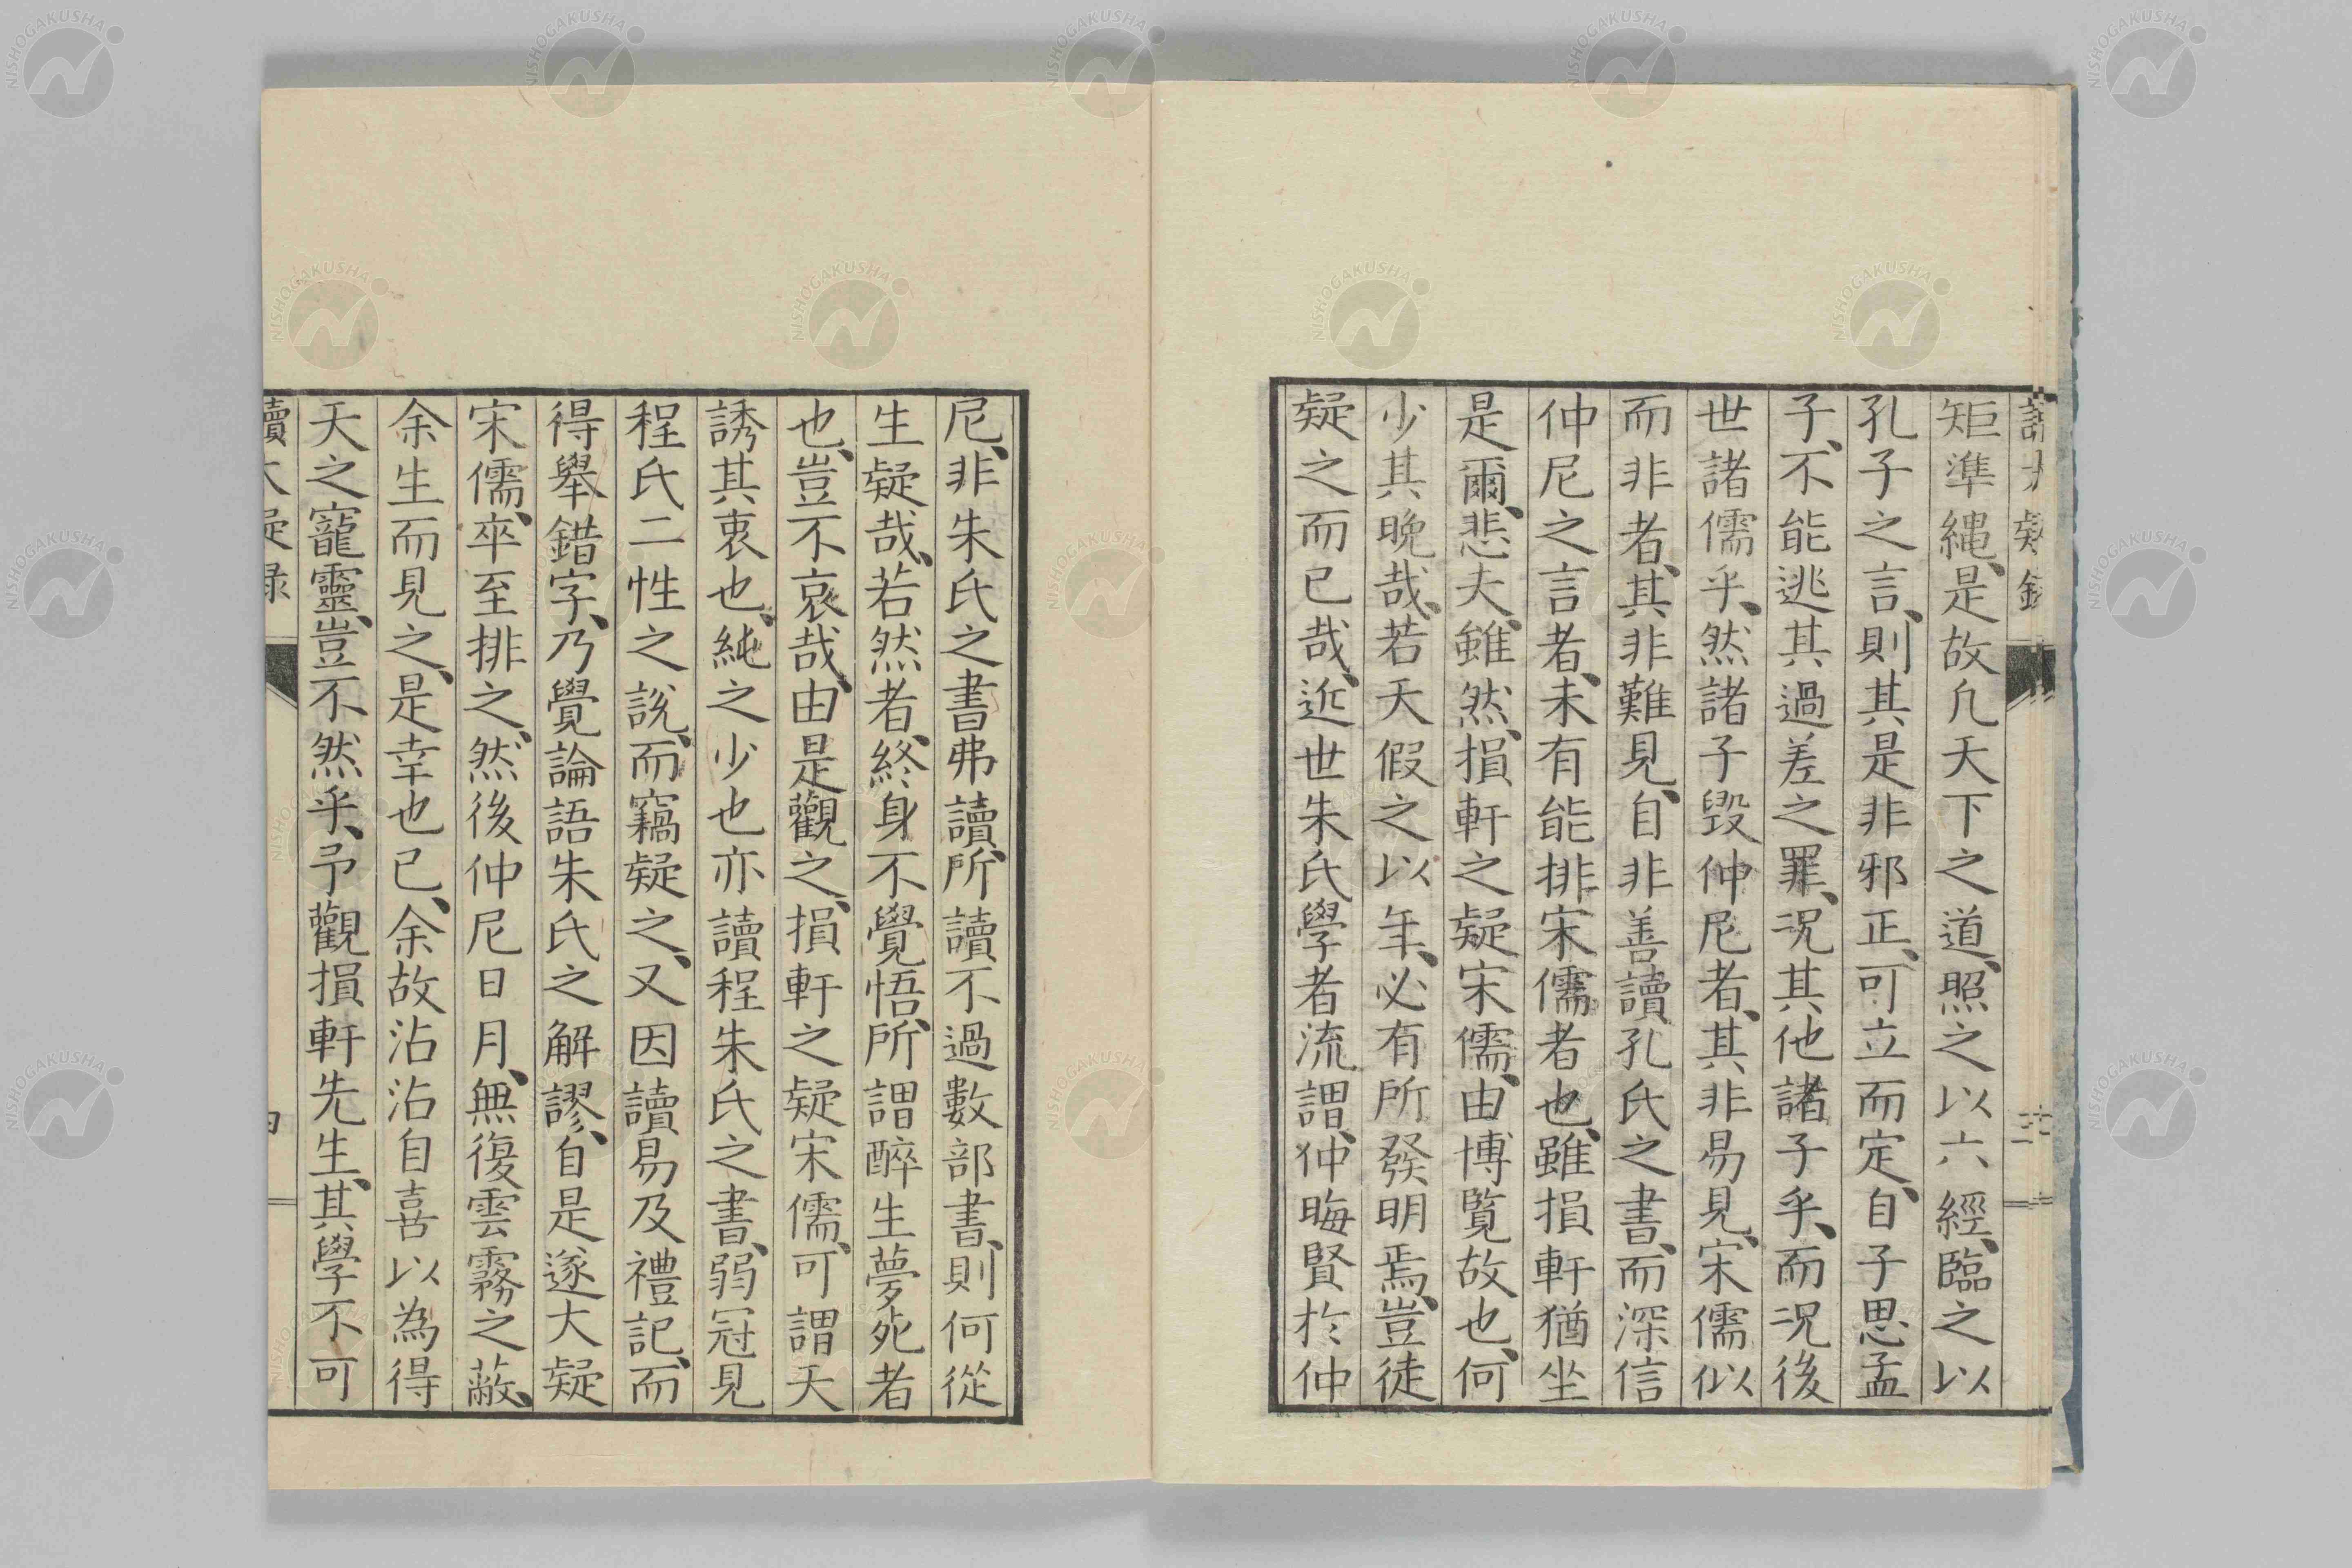 矩準縄、是故凡天下之道、照之以六經、臨之以
孔子之言、則其是非邪正、可立而定、自子思孟
子、不能逃其過差之罪、况其他諸子乎、而况後
世諸儒乎、然諸子毀仲尼者、其非易見、宋儒似
而非者、其非難見、自非善讀孔氏之書、而深信
仲尼之言者、未有能排宋儒者也、雖損軒猶坐
是爾、悲夫、雖然、損軒之疑宋儒、由博覧故也、何
少其晩哉、若天假之以年、必有所發明焉、豈徒
疑之而已哉、近世朱氏學者流謂、仲晦賢於仲
尼、非朱氏之書弗讀、所讀不過數部書、則何從
生疑哉、若然者、終身不覺悟、所謂醉生夢死者
也、豈不哀哉、由是觀之、損軒之疑宋儒、可謂天
誘其衷也、純之少也亦讀程朱氏之書、弱冠見
程氏二性之説、而竊疑之、又因讀易及禮記、而
得舉錯字、乃覺論語朱氏之解謬、自是遂大疑
宋儒、卒至排之、然後仲尼日月、無復雲霧之蔽、
余生而見之、是幸也已、余故沾沾自喜以為得
天之寵靈、豈不然乎、予觀損軒先生、其學不可
讀大疑録